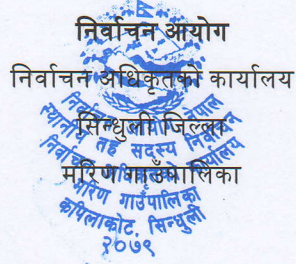 निर्वाचन आयोग
निर्वाचन अधिकृतको कार्यालय
सिन्धुली जिल्ला
मरिण गाउँपालिका
नेपाल
स्थानीय तह सदस्य निर्वाचन
निर्वाचन अधिकृतको कार्यालय
मरिण गाउँपालिका
कपिलाकोट, सिन्धुली
२०७९